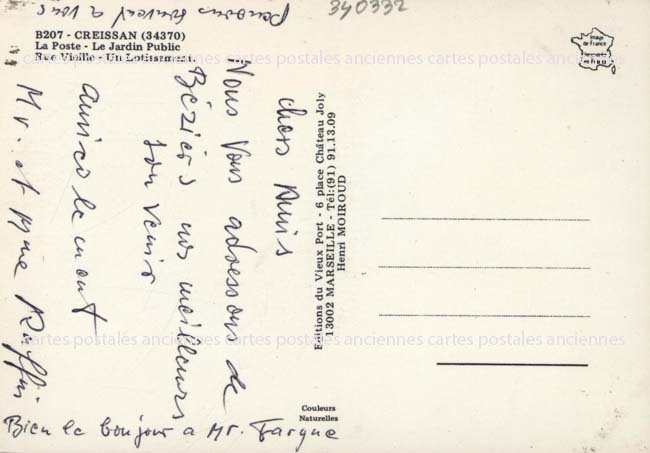 pensons souvent a vous
340332
B207 - CREISSAN (34370)
La Poste - Le Jardin Public
Rue Vieille - Un Lotissement.
Image
de France
chers Amis
Nous Vous adressons de
Béziers nos meilleurs
Souvenir
Amicalement
Mr. et Mme Ruffin
Bien le bonjour a Mr. Fargue
Editions du Vieux Port - 6 place Château Joly
13002 MARSEILLE - Tél:(91) 91.13.09
Henri MOIROUD
Couleurs
Naturelles
anciennes cartes postales anciennes cartes postales anciennes
cartes postales anciennes cartes postales anciennes